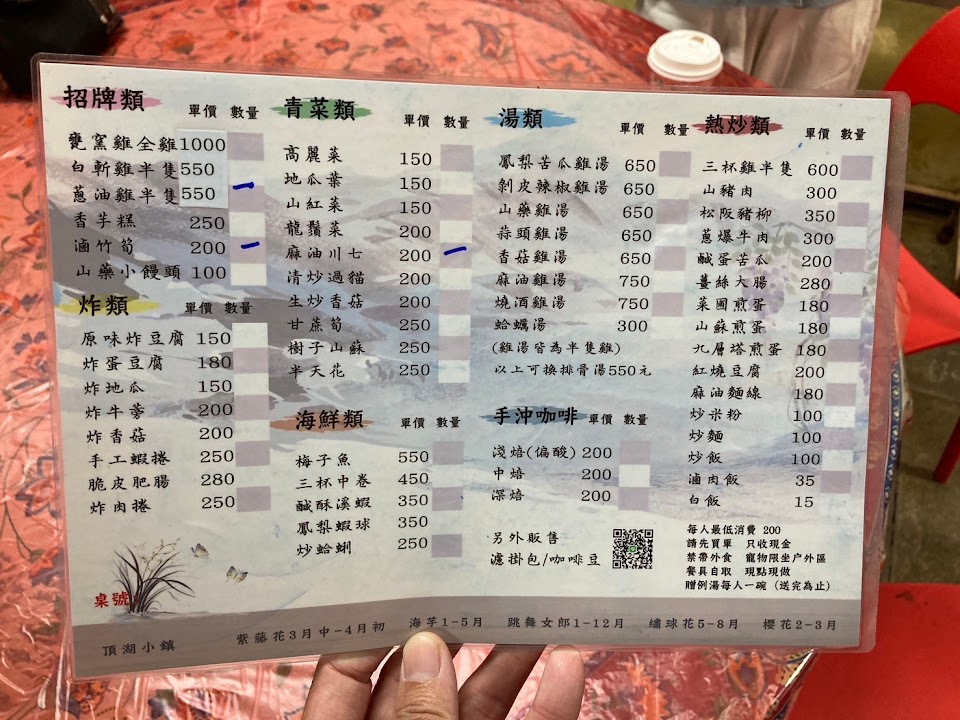 招牌類 單價 數量
甕窯雞全雞 1000
白斬雞半隻 550
蔥油雞半隻 550 一
香芋糕 250
滷竹筍 200 一
山藥小饅頭 100
炸類 單價 數量
原味炸豆腐 150
炸蛋豆腐 180
炸地瓜 150
炸牛蒡 200
炸香菇 200
手工蝦捲 250
脆皮肥腸 280
炸肉捲 250
桌號
青菜類 單價 數量
高麗菜 150
地瓜葉 150
山紅菜 150
龍鬚菜 200
麻油川七 200 一
清炒過貓 200
生炒香菇 200
甘蔗筍 250
樹子山蘇 250
半天花 250
海鮮類 單價 數量
梅子魚 550
三杯中卷 450
鹹酥溪蝦 350
鳳梨蝦球 350
炒蛤蜊 250
湯類 單價 數量
鳳梨苦瓜雞湯 650
剝皮辣椒雞湯 650
山藥雞湯 650
蒜頭雞湯 650
香菇雞湯 650
麻油雞湯 750
燒酒雞湯 750
蛤蠣湯 300
(雞湯皆為半隻雞)
以上可換排骨湯550元
手沖咖啡 單價 數量
淺焙(偏酸) 200
中焙 200
深焙 200
另外販售
濾掛包/咖啡豆
熱炒類 單價 數量
三杯雞半隻 600
山豬肉 300
松阪豬柳 350
蔥爆牛肉 300
鹹蛋苦瓜 200
薑絲大腸 280
菜圃煎蛋 180
山蘇煎蛋 180
九層塔煎蛋 180
紅燒豆腐 200
麻油麵線 180
炒米粉 100
炒麵 100
炒飯 100
滷肉飯 35
白飯 15
每人最低消費 200
請先買單 只收現金
禁帶外食 寵物限坐戶外區
餐具自取 現點現做
贈例湯每人一碗 (送完為止)
頂湖小鎮 紫藤花3月中-4月初 海芋1-5月 跳舞女郎1-12月 繡球花5-8月 櫻花2-3月